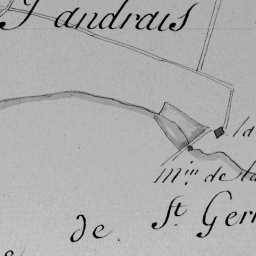 Landrais
la
m.in de la
de St. Germ